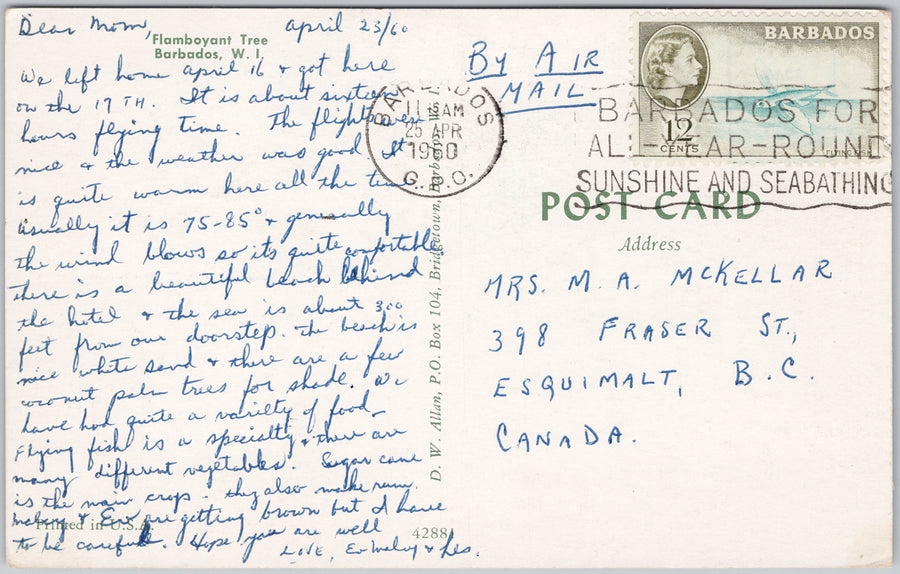 Dear Mom, april 23/60
Flamboyant Tree
Barbados, W. I.
We left home april 16 & got here
on the 17TH. It is about sixteen
hours flying time. The flights were
nice & the weather was good It
is quite warm here all the time
usually it is 75-85° & generally
the wind blows so its quite comfortable
there is a beautiful beach behind
the hotel & the sea is about 300
feet from our doorstep. The beach is
nice white sand & there are a few
coconut palm trees for shade. We
have had quite a varielty of food
Flying fish is a specialty & there are
many different vegetables. Sugar cane
is the main crop - they also make rum.
& Ev are getting brown but I have
to be careful. Hope you are well
Love, & Les.
Printed in U.S.A.
42881
D. W. Allan, P.O. Box 104, Bridgetown, Barbados, W.I.
By Air
Mail
BARBADOS
11 15 AM
25 APR
1960
G.P.O.
BARBADOS FOR
ALL-YEAR-ROUND
SUNSHINE AND SEABATHING
BARBADOS
12
CENTS
FLYING FISH
POST CARD
Address
MRS. M. A. McKELLAR
398 FRASER ST.,
ESQUIMALT, B.C.
CANADA.